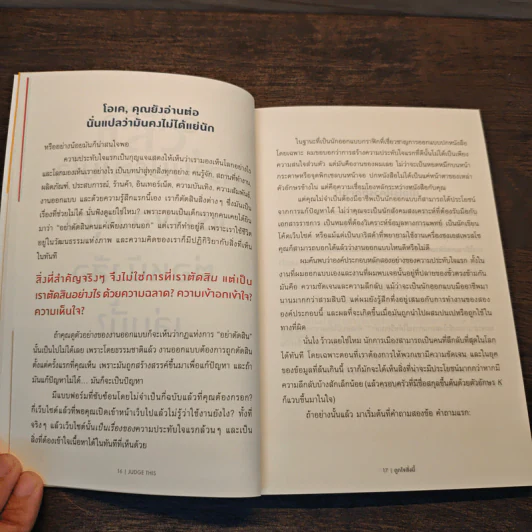 โอเค, คุณยังอ่านต่อ
นั่นแปลว่ามันคงไม่ได้แย่นัก
หรืออย่างน้อยมันก็น่าสนใจพอ
ความประทับใจแรกเป็นกุญแจแสดงให้เห็นว่าเรามองเห็นโลกอย่างไร
และโลกมองเห็นเราอย่างไร เป็นบทนำสู่ทุกสิ่งทุกอย่าง: คนรู้จัก, สถานที่ทำงาน,
ผลิตภัณฑ์, ประสบการณ์, ร้านค้า, อินเทอร์เน็ต, ความบันเทิง, ความสัมพันธ์,
งานออกแบบ และด้วยความรู้สึกแรกนี้เอง เราก็ตัดสินสิ่งต่างๆ ซึ่งมันเป็น
เรื่องที่ช่วยไม่ได้ นั่นฟังดูแย่ใช่ไหม? เพราะตอนเป็นเด็กเราทุกคนเคยได้ยิน
มาว่า "อย่าตัดสินคนแค่เพียงภายนอก" แต่เราก็ทำอยู่ดี เพราะเราใช้ชีวิต
อยู่ในวัฒนธรรมแห่งภาพ และความคิดของเราก็มีปฏิกิริยากับสิ่งที่เห็น
ในทันที
สิ่งที่สำคัญจริงๆ จึงไม่ใช่การที่เราตัดสิน แต่เป็น
เราตัดสินอย่างไร ด้วยความฉลาด? ความเข้าอกเข้าใจ?
ความเห็นใจ?
ถ้าคุณดูตัวอย่างของงานออกแบบก็จะเห็นว่ากฎแห่งการ "อย่าตัดสิน"
นั้นเป็นไปไม่ได้เลย เพราะโดยธรรมชาติแล้ว งานออกแบบต้องการถูกตัดสิน
ตั้งแต่ครั้งแรกที่คุณเห็น เพราะมันถูกสร้างสรรค์ขึ้นมาเพื่อแก้ปัญหา และถ้า
มันแก้ปัญหาไม่ได้... มันก็จะเป็นปัญหา
มีแบบฟอร์มที่ซับซ้อนโดยไม่จำเป็นกี่ฉบับแล้วที่คุณต้องกรอก?
กี่เว็บไซต์แล้วที่พอคุณเปิดเข้าหน้าเว็บไปแล้วไม่รู้ว่าใช้งานยังไง? ทั้งที่
จริงๆ แล้วเว็บไซต์นั้นเป็นเรื่องของความประทับใจแรกล้วนๆ และเป็น
สิ่งที่ต้องเข้าใจเนื้อหาได้ในทันทีที่เห็นด้วย
16 | JUDGE THIS
ในฐานะที่เป็นนักออกแบบกราฟิกที่เชี่ยวชาญการออกแบบปกหนังสือ
โดยเฉพาะ ผมขอบอกว่าการสร้างความประทับใจแรกที่ดีนั้นไม่ได้เป็นเพียง
ความสนใจส่วนตัว แต่มันคืองานของผมเลย ไม่ว่าจะเป็นหยดหมึกบนหน้า
กระดาษหรือจุดพิกเซลบนหน้าจอ ปกหนังสือไม่ได้แค่ทำหน้าที่เป็นหน้าตาของเหล่า
ตัวอักษรข้างใน แต่คือความเชื่อมโยงหลักระหว่างหนังสือกับคุณ
แต่คุณไม่จำเป็นต้องมีอาชีพเป็นนักออกแบบก็สามารถได้ประโยชน์
จากการแก้ปัญหาได้ ไม่ว่าคุณจะเป็นนักสังคมสงเคราะห์ที่ต้องรับมือกับ
เอกสารราชการ เป็นหมอที่ต้องวิเคราะห์ข้อมูลทางการแพทย์ เป็นนักเขียน
โค้ดเว็บไซต์ หรือแม้แต่เป็นบาริสต้าที่พยายามใช้งานเครื่องชงเอสเพรสโซ
คุณก็สามารถบอกได้แล้วว่างานออกแบบไหนดีหรือไม่ดี
ผมค้นพบว่าองค์ประกอบหลักสองอย่างของความประทับใจแรก ทั้งใน
งานที่ผมออกแบบเองและงานที่ผมพบเจอนั้นอยู่ที่ปลายของขั้วตรงข้ามกัน
นั่นคือ ความชัดเจนและความลึกลับ แม้ว่าจะเป็นนักออกแบบมืออาชีพมา
นานมากกว่าสามสิบปี แต่ผมยังรู้สึกทึ่งอยู่เสมอกับการทำงานของสอง
องค์ประกอบนี้ และผลที่จะเกิดขึ้นเมื่อมันถูกนำไปผสมปนเปหรือถูกใช้ใน
ทางที่ผิด
นั่นไง ว้าวเลยใช่ไหม นักการเมืองสามารถเป็นคนที่ลึกลับที่สุดในโลก
ได้ทันที โดยเฉพาะตอนที่เราต้องการให้พวกเขามีความชัดเจน และในยุค
ของข้อมูลที่ล้นเกินนี้ เราก็มักจะได้เห็นสิ่งที่น่าจะมีประโยชน์มากกว่าหากมี
ความลึกลับบ้างสักเล็กน้อย (แล้วครอบครัวที่มีชื่อสกุลขึ้นต้นด้วยตัวอักษร K
ก็แวบขึ้นมาในใจ)
ถ้าอย่างนั้นแล้ว มาเริ่มต้นที่คำถามสองข้อ คำถามแรก:
17 | ดูถูกสิ่งนี้